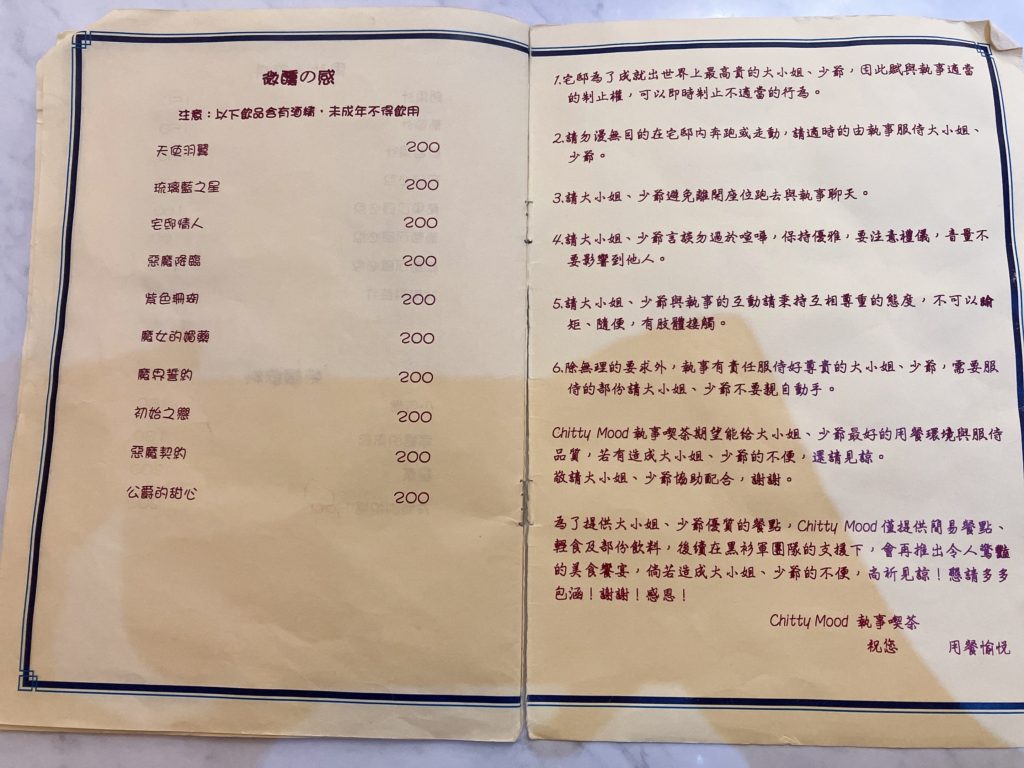 微醺の感
注意：以下飲品含有酒精，未成年不得飲用
天使羽翼 200
琉璃藍之星 200
宅邸情人 200
惡魔降臨 200
紫色珊瑚 200
魔女的媚藥 200
魔界誓約 200
初始之戀 200
惡魔契約 200
公爵的甜心 200
1.宅邸為了成就出世界上最高貴的大小姐、少爺，因此賦與執事適當
的制止權，可以即時制止不適當的行為。
2.請勿漫無目的在宅邸內奔跑或走動，請適時的由執事服侍大小姐、
少爺。
3.請大小姐、少爺避免離開座位跑去與執事聊天。
4.請大小姐、少爺言談勿過於喧嘩，保持優雅，要注意禮儀，音量不
要影響到他人。
5.請大小姐、少爺與執事的互動請秉持互相尊重的態度，不可以踰
矩、隨便，有肢體接觸。
6.除無理的要求外，執事有責任服侍好尊貴的大小姐、少爺，需要服
侍的部份請大小姐、少爺不要親自動手。
Chitty Mood 執事喫茶期望能給大小姐、少爺最好的用餐環境與服侍
品質，若有造成大小姐、少爺的不便，還請見諒。
敬請大小姐、少爺協助配合，謝謝。
為了提供大小姐、少爺優質的餐點，Chitty Mood 僅提供簡易餐點、
輕食及部份飲料，後續在黑衫軍團隊的支援下，會再推出令人驚豔
的美食饗宴，倘若造成大小姐、少爺的不便，尚祈見諒！懇請多多
包涵！謝謝！感恩！
Chitty Mood 執事喫茶
祝您 用餐愉悅